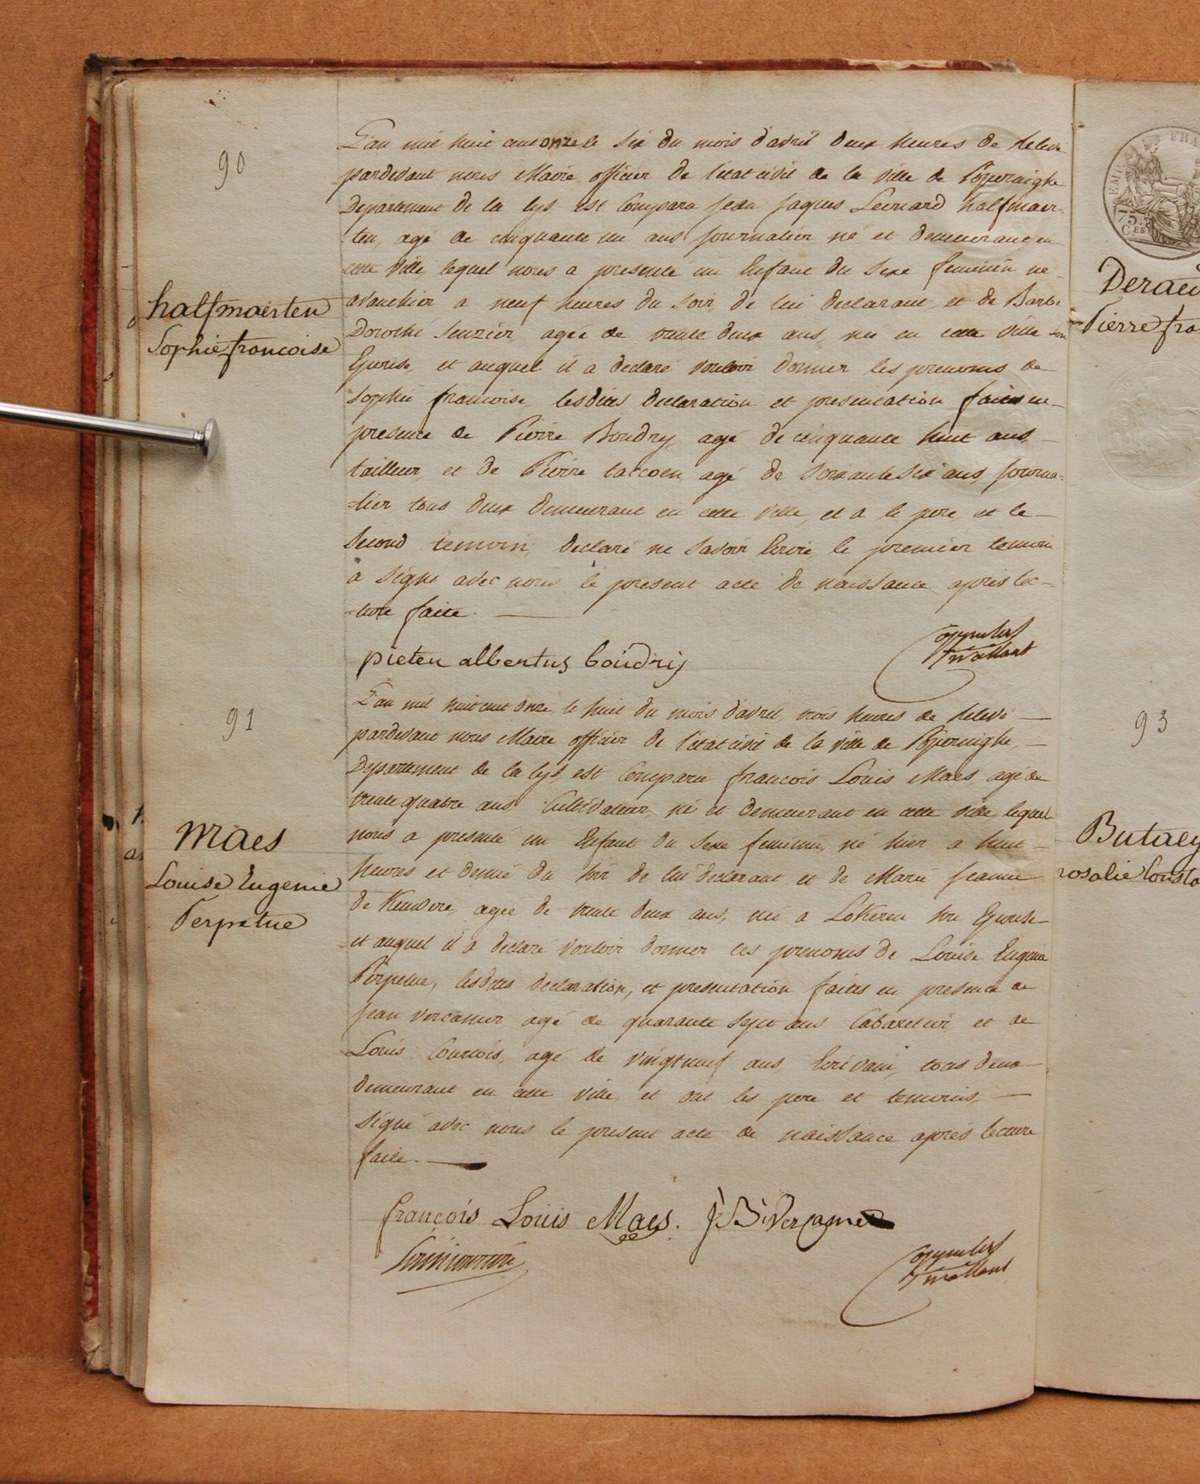 90
halfmaerten
Sophie francoise
L'an mil huit cent onze le six du mois d'avril deux heures de relevé
pardevant nous Maire officier de l'etat civil de la ville de Poperinghe
Departement de la lys est Comparu Jean Jaques Leonard halfmaer-
ten, agé de cinquante un ans Journalier né et demeurant en
cette ville lequel nous a presenté un Enfant du Sexe feminin né
avanthier a neuf heures du soir, de lui declarant et de Barbe
Dorothé agée de trente deux ans, née en cette ville son
Epouse, et auquel il a declaré vouloir donner les prenoms de
Sophie francoise lesdites declaration et presentation faites en
presence de Pierre Boudry, agé de cinquante huit ans
tailleur, et de Pierre agé de Soixante Six ans, Journa-
-lier tous deux demeurant en cette ville, et a le pere, et le
Second temoin, declaré ne Savoir Ecrire le premier temoin
a Signé avec nous le present acte de naissance après lec-
-ture faite.
pieter albertus boudrij
91
Maes
Louise Eugenie
Perpetue
L'an mil huit cent onze le huit du mois d'avril, trois heures de relevé
pardevant nous Maire officier de l'etat civil de la ville de Poperinghe,
Departement de la lys, est Comparu francois Louis Maes, agé de
trente quatre ans Cultivateur, né et demeurant en cette ville lequel
nous a presenté un Enfant du Sexe feminin, né hier a huit
heures et demie du Soir de lui declarant et de Marie Jeanne
De agée de trente deux ans, née a Lokeren Son Epouse
et auquel il a declaré vouloir donner les prenoms de Louise Eugenie
Perpetue, lesdites declaration, et presentation faites en presence de
Jean Vercamer agé de quarante Sept ans Cabaretier, et de
Louis Courtois, agé de vingt neuf ans Ecrivain, tous deux
demeurant en cette ville et ont les pere et temoins,
Signé avec nous le present acte de naissance après lecture
faite.
françois Louis Maes. J: B: Vercame
93
Pierre fra
Butaey
rosalie Consta